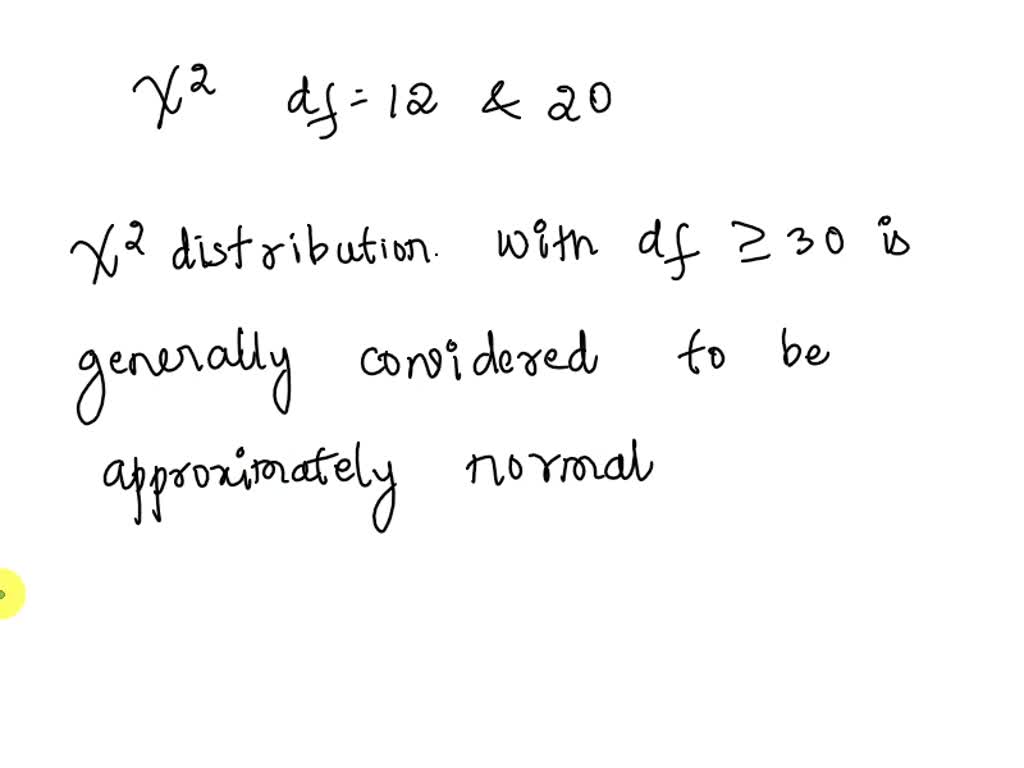 χ² df = 12 & 20
χ² distribution. with df ≥ 30 is
generally considered to be
approximately normal